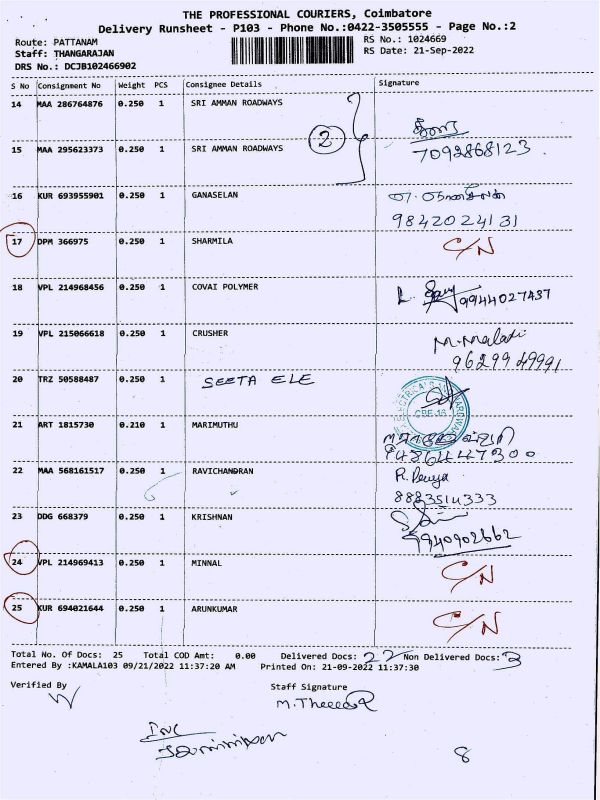 THE PROFESSIONAL COURIERS, Coimbatore
Delivery Runsheet - P103 - Phone No.:0422-3505555 - Page No.:2
Route: PATTANAM
RS No.: 1024669
Staff: THANGARAJAN
RS Date: 21-Sep-2022
DRS No.: DCJB102466902
S No Consignment No Weight PCS Consignee Details Signature
14 MAA 286764876 0.250 1 SRI AMMAN ROADWAYS
2
15 MAA 295623373 0.250 1 SRI AMMAN ROADWAYS 7092868123
16 KUR 693955901 0.250 1 GANASELAN
9842024131
17 DPM 366975 0.250 1 SHARMILA C/N
18 VPL 214968456 0.250 1 COVAI POLYMER 9944027437
19 VPL 215066618 0.250 1 CRUSHER M. Malathi
9629949991
20 TRZ 50588487 0.250 1 SEETA ELE
CBE-16
21 ART 1815730 0.210 1 MARIMUTHU
22 MAA 568161517 0.250 1 RAVICHANDRAN
8883514333
23 DDG 668379 0.250 1 KRISHNAN
9940902662
24 VPL 214969413 0.250 1 MINNAL C/N
25 KUR 694021644 0.250 1 ARUNKUMAR C/N
Total No. Of Docs: 25 Total COD Amt: 0.00 Delivered Docs: 22 Non Delivered Docs: 3
Entered By :KAMALA103 09/21/2022 11:37:20 AM Printed On: 21-09-2022 11:37:30
Verified By
Staff Signature
8